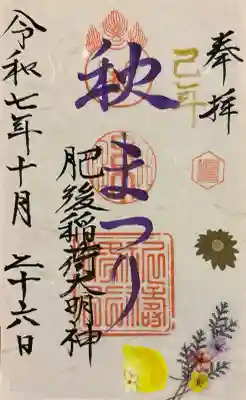 奉拝
巳年
秋まつり
肥後稲荷大明神
令和七年十月二十六日